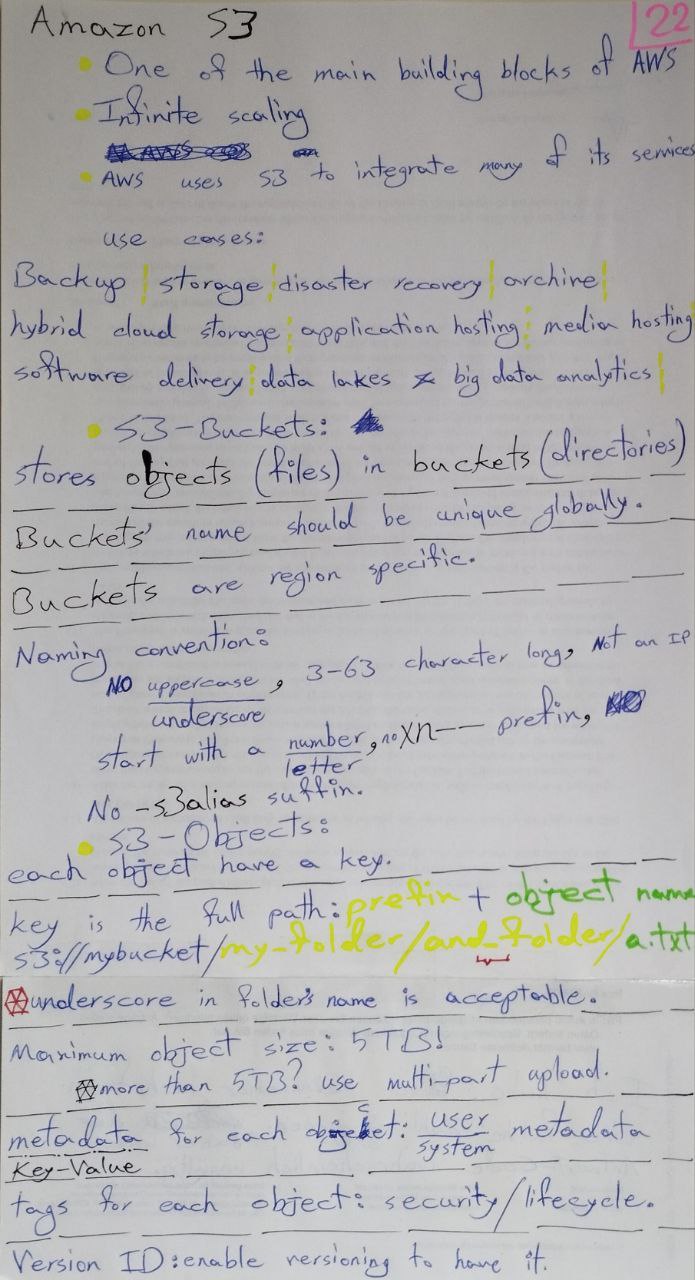 Amazon S3
22
One of the main building blocks of AWS
Infinite scaling
AWS uses S3 to integrate many of its services
use cases:
Backup | storage | disaster recovery | archive |
hybrid cloud storage | application hosting | media hosting
software delivery | data lakes & big data analytics |
S3-Buckets:
stores objects (files) in buckets (directories)
Buckets' name should be unique globally.
Buckets are region specific.
Naming convention:
NO uppercase, 3-63 character long, Not an IP
underscore
start with a number, no Xn-- prefix,
letter
No -s3alias suffix.
S3-Objects:
each object have a key.
key is the full path: prefix + object name
s3://mybucket/my_folder/and_folder/a.txt
underscore in folder's name is acceptable.
Maximum object size: 5TB!
more than 5TB? use multi-part upload.
metadata for each object: user metadata
system
Key-Value
tags for each object: security/lifecycle.
Version ID: enable versioning to have it.